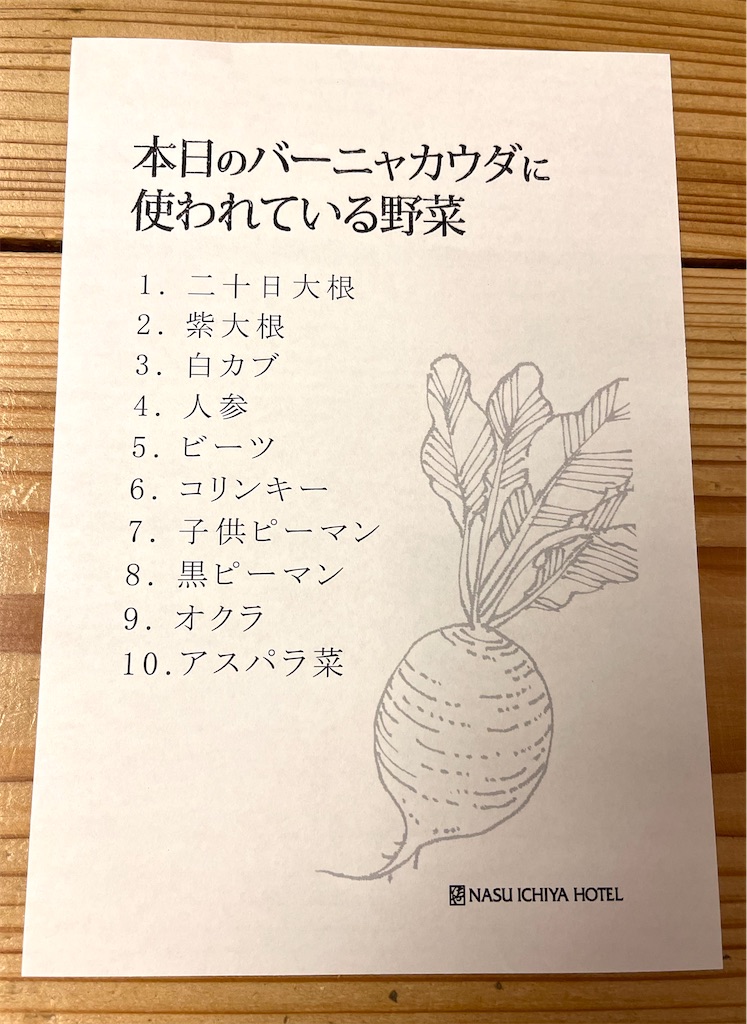 本日のバーニャカウダに
使われている野菜
1. 二十日大根
2. 紫大根
3. 白カブ
4. 人参
5. ビーツ
6. コリンキー
7. 子供ピーマン
8. 黒ピーマン
9. オクラ
10.アスパラ菜
NASU ICHIYA HOTEL